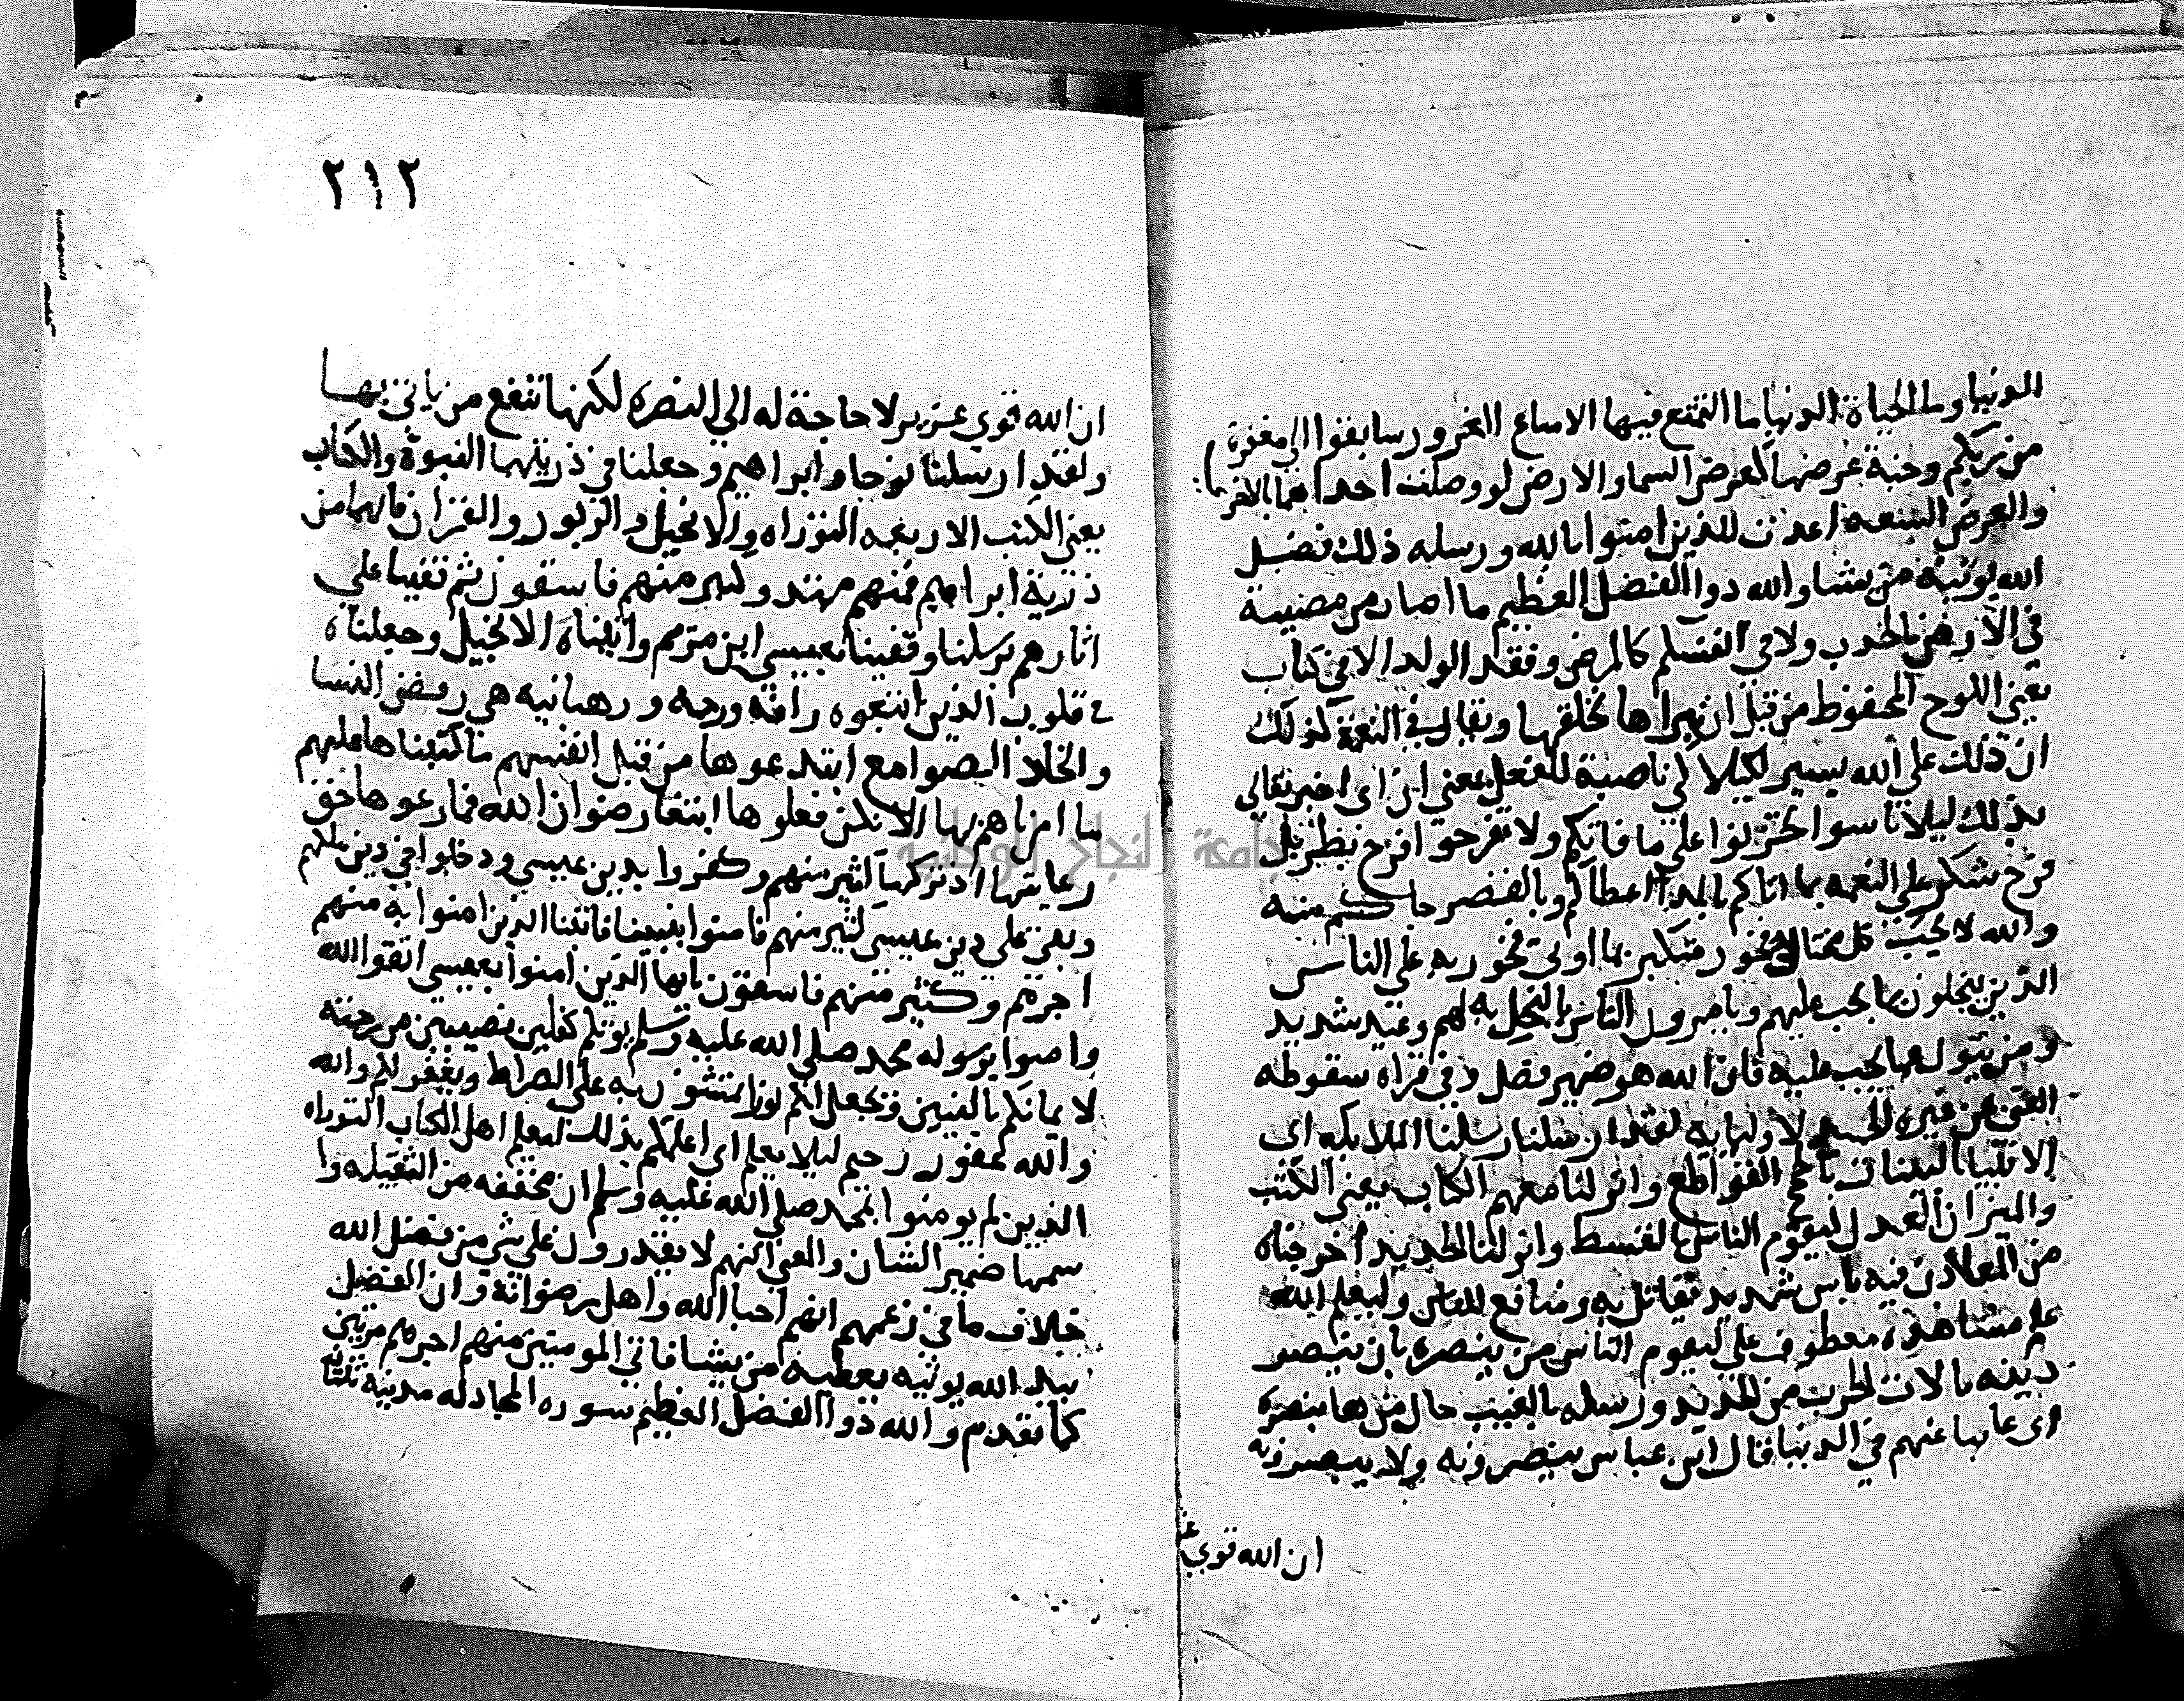 الدنيا وما الحياة الدنيا ما التمتع فيها الا متاع الغرور سابقوا الي مغفرة
من ربكم وجنة عرضها كعرض السما والارض لو وصلت احداهما بالاخرى
والعرض السعه اعدت للذين امنوا بالله ورسله ذلك فضل
الله يوتيه من يشا والله ذوا الفضل العظيم ما اصاب من مصيبة
في الارض بالجدب ولا في انفسكم كالمرض وفقد الولد الا في كتاب
يعني اللوح المحفوظ من قبل ان نبراها نخلقها ويقال في النعمة كذلك
ان ذلك علي الله يسير لكيلا كي ناصبة للفعل بمعني ان اى اخبر تعالي
بذلك ليلا تاسوا تحزنوا علي ما فاتكم ولا تفرحوا فرح بطر بل
فرح شكر علي النعمه بما اتاكم بالمد اعطاكم وبالقصر جاكم منه
والله لا يحب كل مختال فخور متكبر بما اوتي فخور به علي الناس
الذين يبخلون بما يجب عليهم ويامرون الناس بالبخل به لهم وعيد شديد
ومن يتول عما يجب عليه فان الله هو ضمير فصل وفي قراه سقوطه
الغني عن غيره الحميد لاوليايه لقد ارسلنا رسلنا الملايكه اى
الانبيا بالبينات بالحجج القواطع وانزلنا معهم الكتاب بمعني الكتب
والميزان العدل ليقوم الناس بالقسط وانزلنا الحديد اخرجناه
من المعادن فيه باس شديد يقاتل به ومنافع للناس وليعلم الله
علم مشاهدة معطوف علي ليقوم الناس من ينصره بان ينصر
دينه بالات الحرب من الحديد ورسله بالغيب حال من ها ينصره
اى غايبا عنهم في الدنيا قال ابن عباس ينصرونه ولا يبصرونه
ان الله قوي عز
٢١٢
ان الله قوي عزيز لا حاجة له الي النصره لكنها تنفع من ياتي بها
ولقد ارسلنا نوحا وابراهيم وجعلنا في ذريتهما النبوة والكتاب
يعني الكتب الاربعه التوراه والانجيل والزبور والفرقان فانهما من
ذرية ابراهيم فمنهم مهتد وكثير منهم فاسقون ثم قفينا علي
اثارهم برسلنا وقفينا بعيسي ابن مريم واتيناه الانجيل وجعلنا
في قلوب الذين اتبعوه رافة ورحمه ورهبانيه هي رفض النسا
واتخاذ الصوامع ابتدعوها من قبل انفسهم ما كتبناها عليهم
ما امرناهم بها الا لكن فعلوها ابتغا رضوان الله فما رعوها حق
رعايتها اذ تركها كثير منهم وكفروا بدين عيسي ودخلوا في دين ملكهم
وبقي علي دين عيسى كثير منهم فامنوا بنبينا فاتينا الذين امنوا به منهم
اجرهم وكثير منهم فاسقون يايها الذين امنوا بعيسى اتقوا الله
وامنوا برسوله محمد صلي الله عليه وسلم يوتكم كفلين نصيبين من رحمته
لايمانكم بالنبيين ويجعل لكم نورا تمشون به علي الصراط ويغفر لكم والله
والله غفور رحيم ليلا يعلم اي اعلمكم بذلك ليعلم اهل الكتاب التوراه
الذين لم يومنوا بمحمد صلي الله عليه وسلم ان مخففه من الثقيله وا
سمها ضمير الشان والمعني انهم لا يقدرون علي شي من فضل الله
خلاف ما في زعمهم انهم احبا الله واهل رضوانه وان الفضل
بيد الله يوتيه يعطيه من يشا فاتي المومنين منهم اجرهم مرتين
كما تقدم والله ذوا الفضل العظيم سوره المجادله مدنيه
جامعة النجاح الوطنية